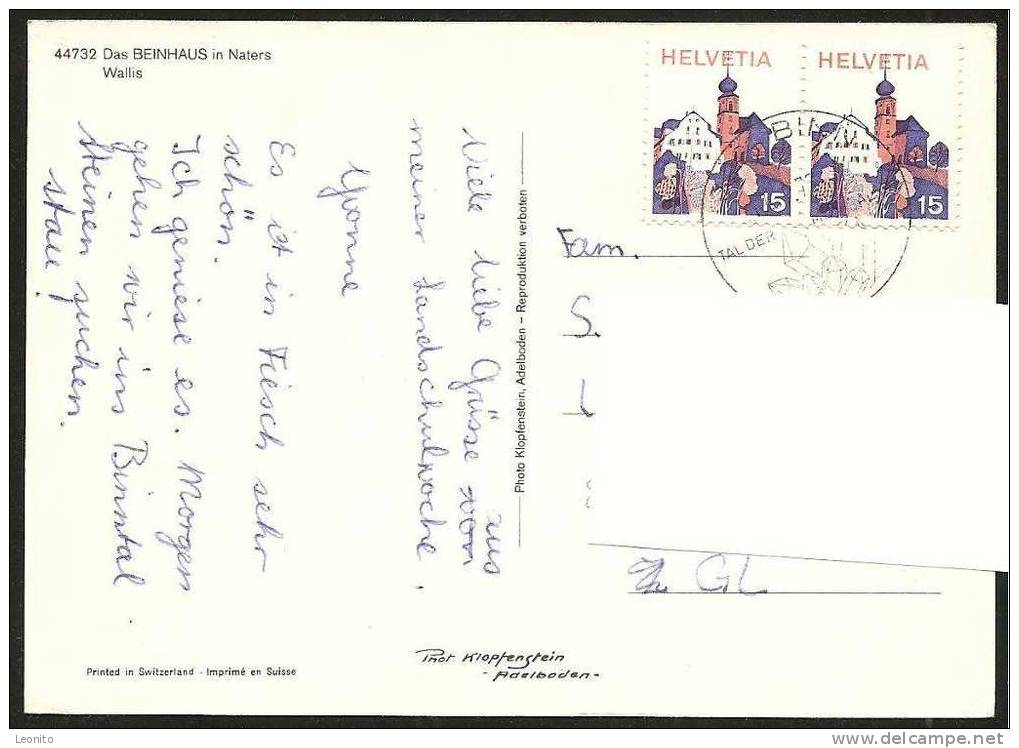 44732 Das BEINHAUS in Naters
Wallis
HELVETIA
15
HELVETIA
15
BINN
TAL DER
Viele liebe Grüsse vom aus
meiner Landschulwoche.
Yvonne
Es ist in Fiesch sehr
schön.
Ich geniese es. Morgen
gehen wir ins Binntal
Steinen suchen.
Photo Klopfenstein, Adelboden – Reproduktion verboten
Fam.
S.
L
GL
Printed in Switzerland - Imprimé en Suisse
Phot Klopfenstein
- Adelboden -
Leonito
www.delcampe.net